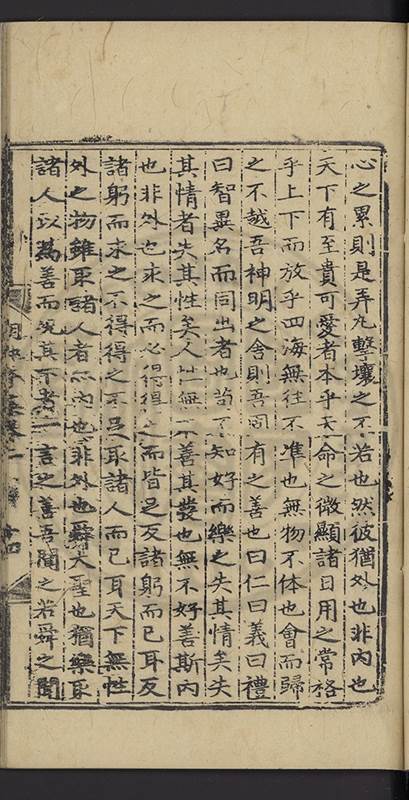 心之累則是弄丸擊壤之不若也然彼猶外也非內也
天下有至貴可愛者本乎天命之微顯諸日用之常格
乎上下而放乎四海無往不準也無物不体也會而歸
之不越吾神明之舍則吾固有之善也曰仁曰義曰禮
曰智異名而同出者也苟不知好而樂之失其情矣失
其情者失其性矣人性無不善其發也無不好善斯內
也非外也求之而必得得之而皆足反諸躬而已耳反
諸躬而求之不得得之不足取諸人而已耳天下無性
外之物雖取諸人者亦內也非外也舜大聖也猶樂取
諸人以為善而况其下者一言之善吾聞之若舜之聞
十四